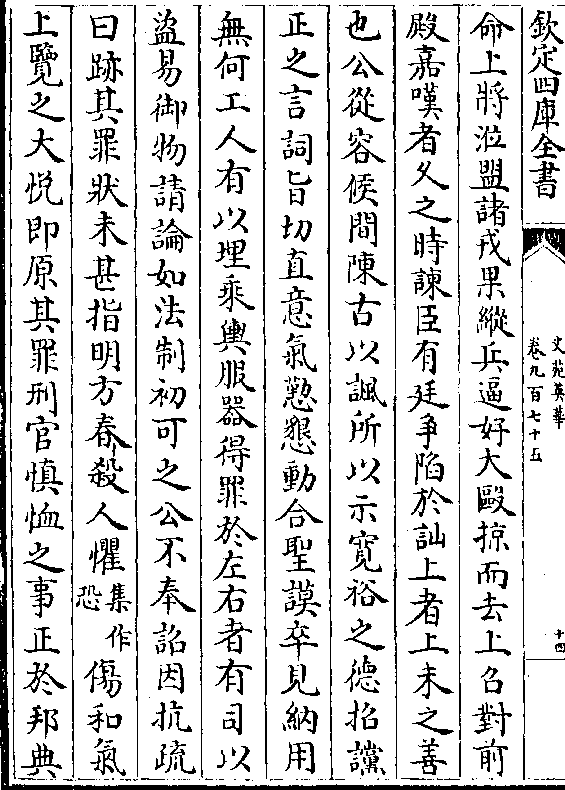 欽定四庫全書
文苑英華
卷九百七十五
十四
命上將涖盟諸戎果縱兵逼好大毆掠而去上召對前
殿嘉嘆者乆之時諫臣有廷爭陷於訕上者上未之善
也公從容候間陳古以諷所以示寛裕之徳招讜
正之言詞㫖切直意氣懃懇動合聖謨卒見納用
無何工人有以埋乘輿服器得罪於左右者有司以
盗易御物請論如法制初可之公不奉詔因抗疏
曰跡其罪狀未甚指明方春殺人懼集作恐傷和氣
上覽之大悦即原其罪刑官慎恤之事正於邦典